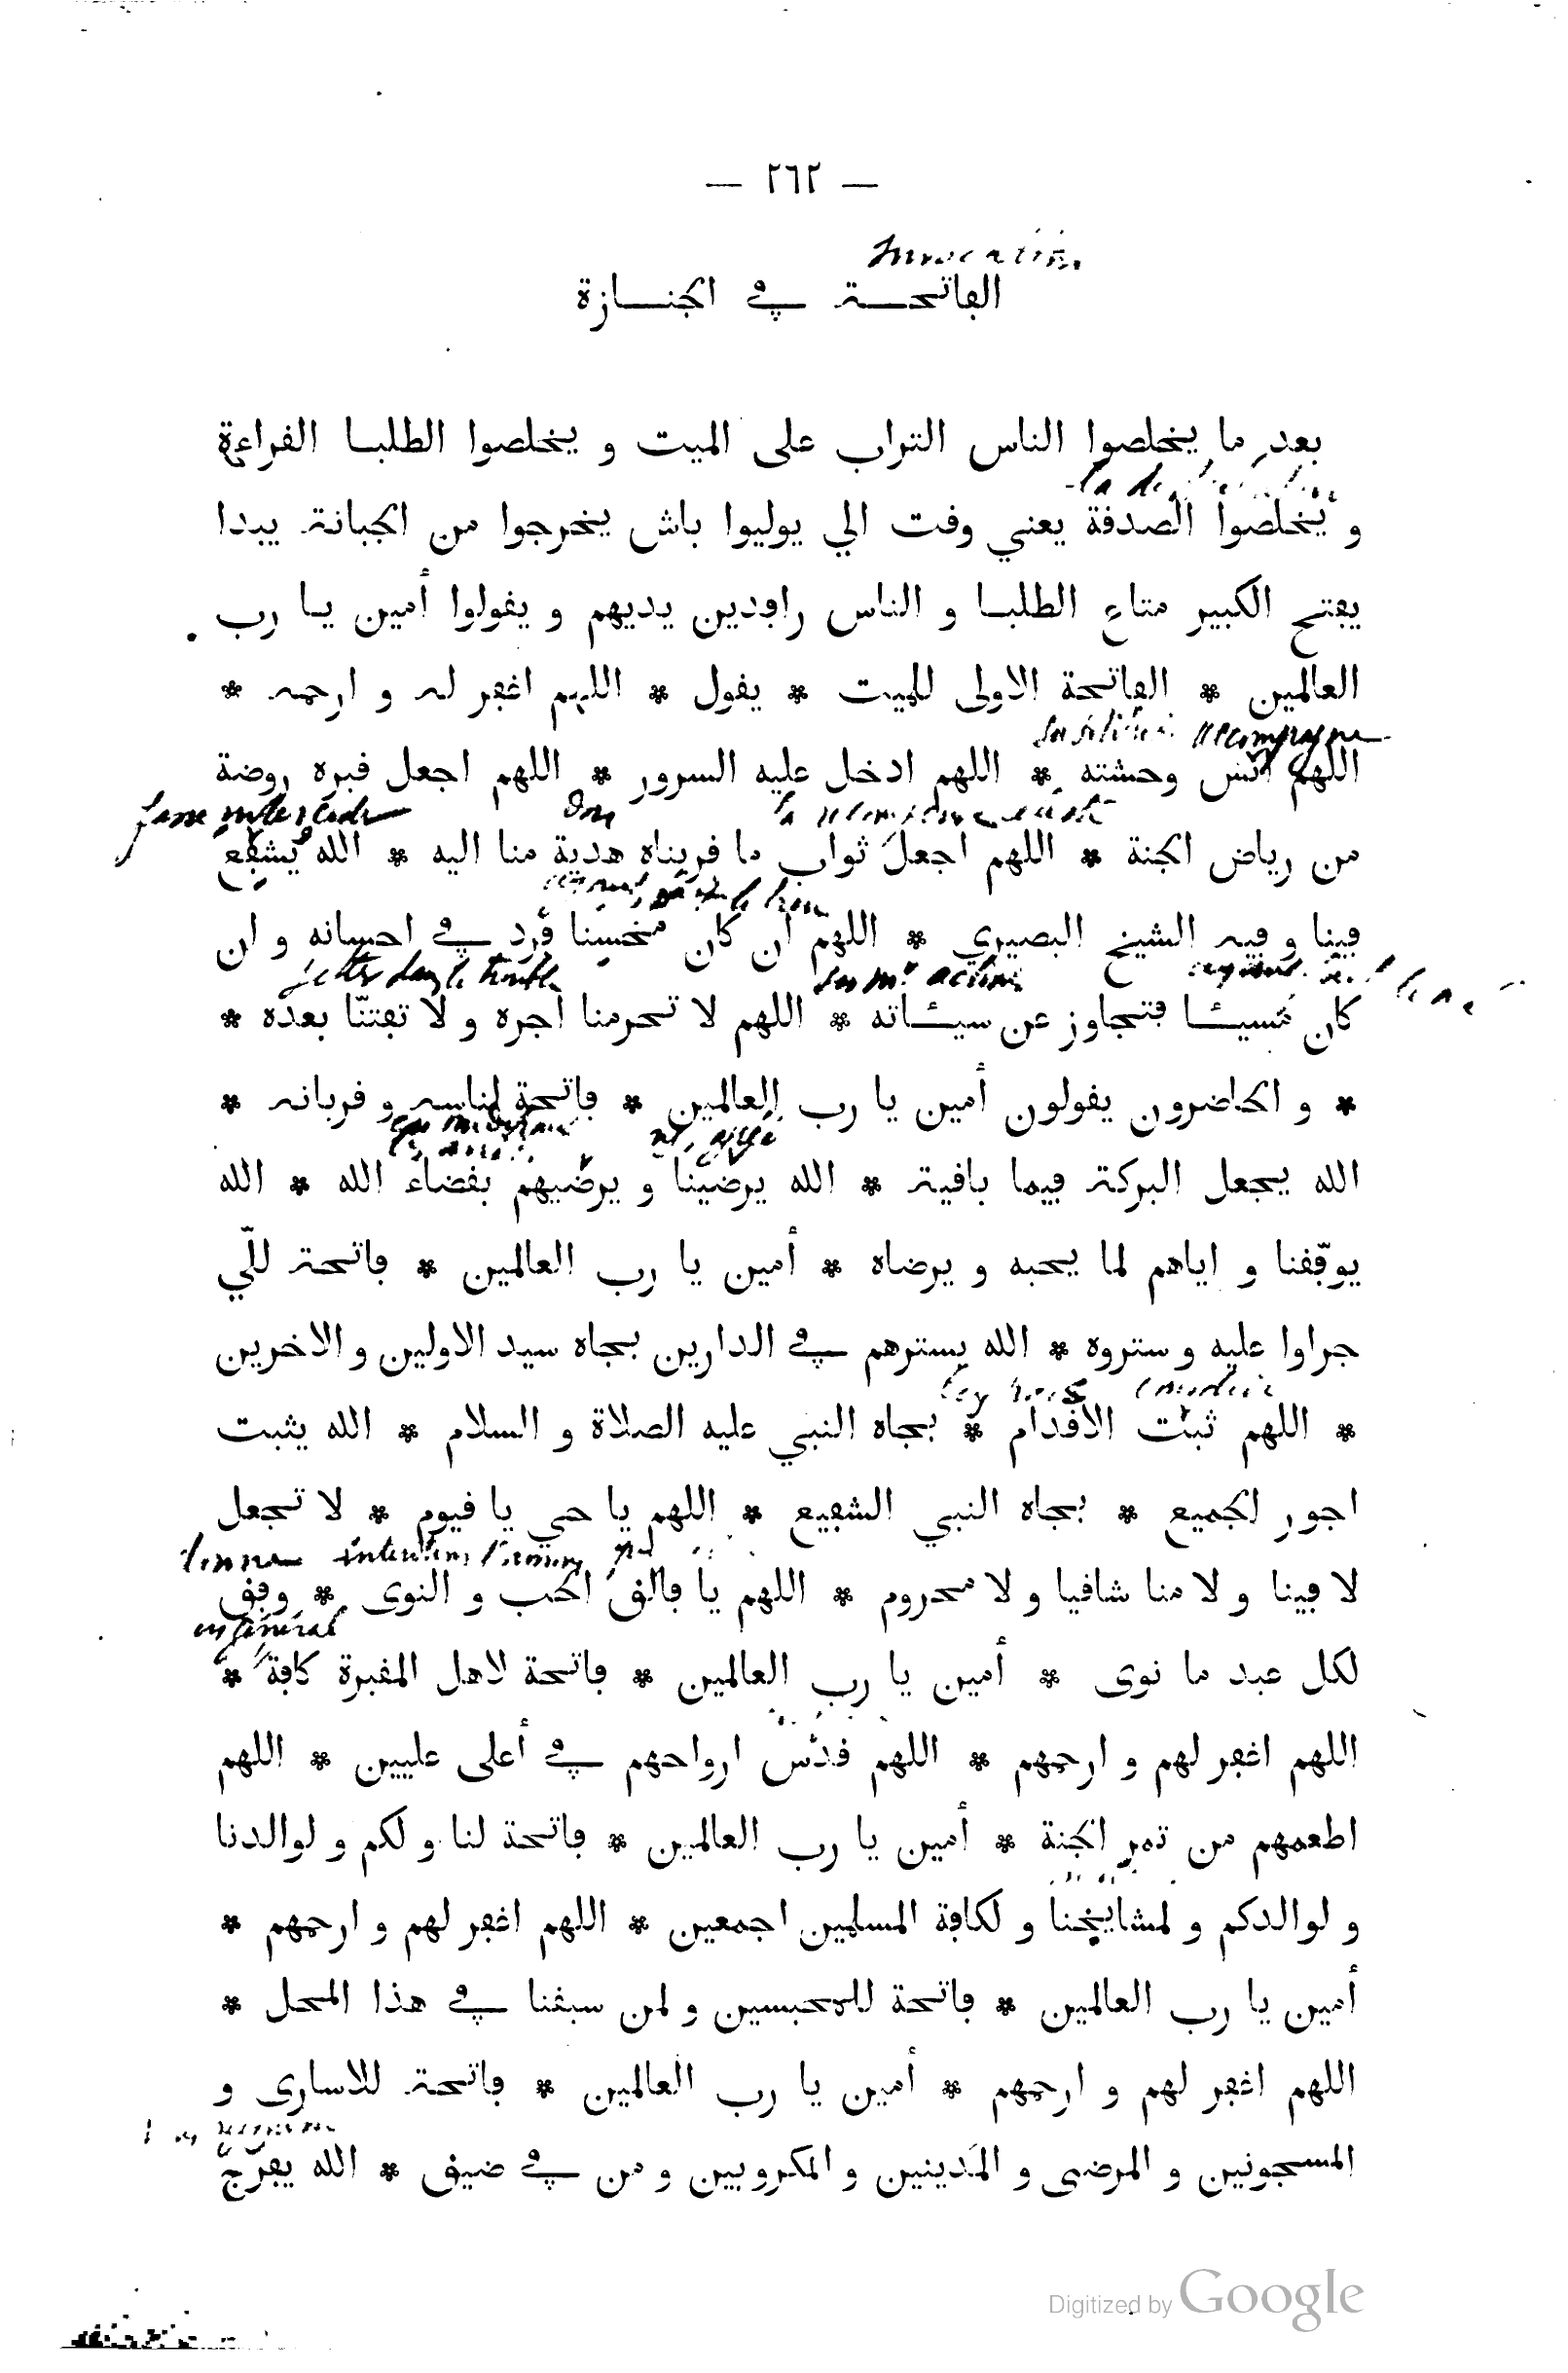 — ٢٦٢ —
Invocation
الفاتحة في الجنازة
بعد ما يخلصوا الناس التراب على الميت و يخلصوا الطلبا القراءة
و يخلصوا الصدقة يعني وقت الي يوليوا باش يخرجوا من الجبانة يبدا
يفتح الكبير متاع الطلبا و الناس رافدين يديهم و يقولوا أمين يا رب
العالمين * الفاتحة الاولى للميت * يقول * اللهم اغفر له و ارحمه *
accompagne
اللهم آنس وحشته * اللهم ادخل عليه السرور * اللهم اجعل قبره روضة
Don
من رياض الجنة * اللهم اجعل ثواب ما قريناه هدية منا اليه * الله يشفّع
فينا و فيه الشيخ البصيري * اللهم ان كان مُحسِنا فزد في احسانه و ان
كان مُسيئا فتجاوز عن سيئاته * اللهم لا تحرمنا اجره و لا تفتنّا بعده *
* و الحاضرون يقولون أمين يا رب العالمين * فاتحة لناسه و قربانه *
الله يجعل البركة فيما باقية * الله يرضّينا و يرضّيهم بقضاء الله * الله
يوفّقنا و اياهم لما يحبه و يرضاه * أمين يا رب العالمين * فاتحة للّي
جراوا عليه و ستروه * الله يسترهم في الدارين بجاه سيد الاولين و الاخرين
* اللهم ثبّت الاقدام * بجاه النبي عليه الصلاة و السلام * الله يثبت
اجور الجميع * بجاه النبي الشفيع * اللهم يا حي يا قيوم * لا تجعل
لا فينا و لا منا شاقيا و لا محروم * اللهم يا فالق الحب و النوى * وفق
en général
لكل عبد ما نوى * أمين يا رب العالمين * فاتحة لاهل المقبرة كافة *
اللهم اغفر لهم و ارحمهم * اللهم قدّس ارواحهم في أعلى عليين * اللهم
اطعمهم من ثمر الجنة * أمين يا رب العالمين * فاتحة لنا و لكم و لوالدنا
و لوالدكم و لمشايخنا و لكافة المسلمين اجمعين * اللهم اغفر لهم و ارحمهم *
أمين يا رب العالمين * فاتحة للمحبسين و لمن سبقنا في هذا المحل *
اللهم اغفر لهم و ارحمهم * أمين يا رب العالمين * فاتحة للاسارى و
المسجونين و المرضى و المَدينين و المكروبين و من في ضيق * الله يفرّج
Digitized by Google